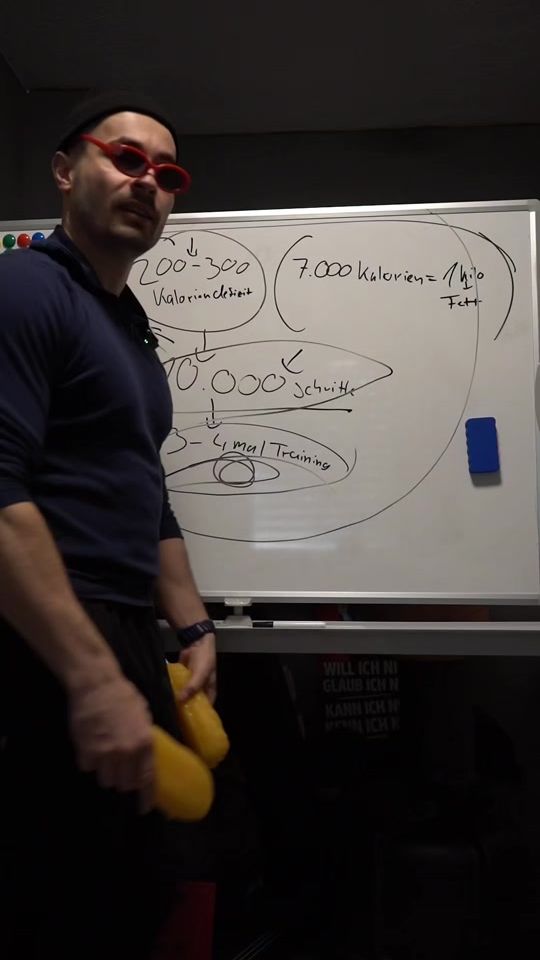 200-300
Kaloriendefizit
7.000 Kalorien = 1 kilo
Fett
10.000 schritte
3-4 mal Training
WILL ICH NI
GLAUB ICH N
KANN ICH N
KENN ICH N